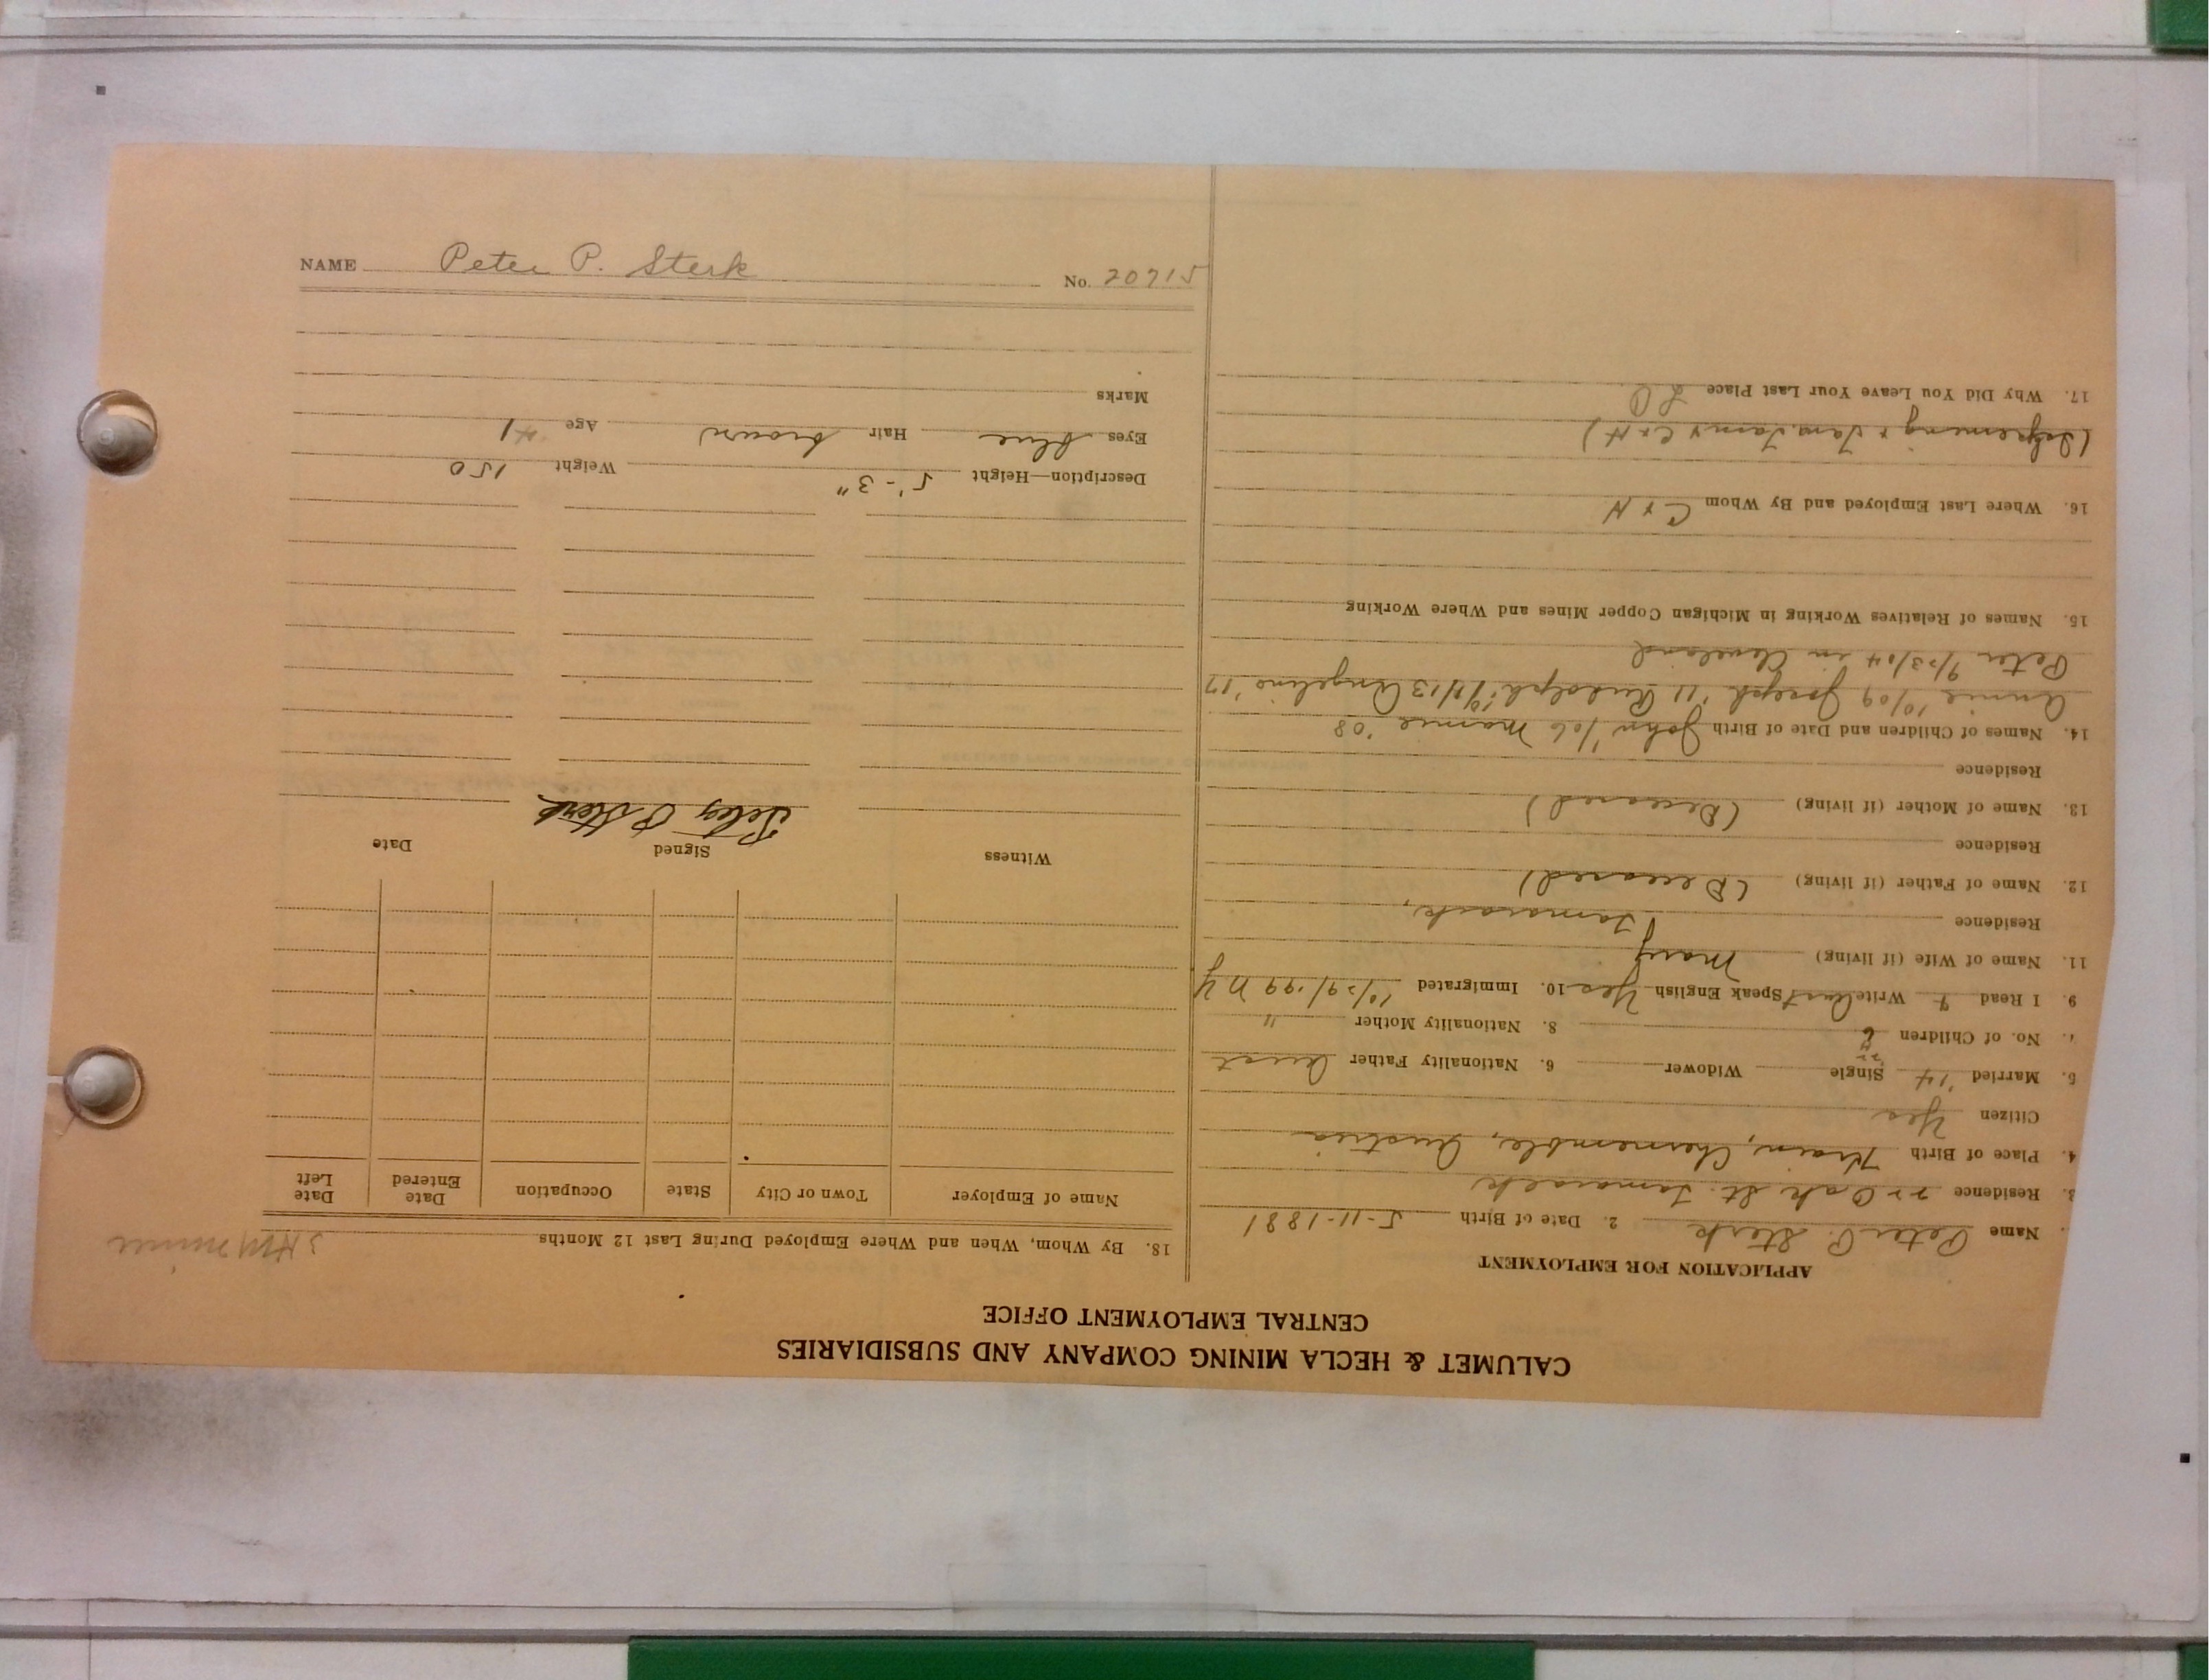 CALUMET & HECLA MINING COMPANY AND SUBSIDIARIES
CENTRAL EMPLOYMENT OFFICE
APPLICATION FOR EMPLOYMENT
Name Peter P. Sterk 2. Date of Birth 5-11-1881
3. Residence 22 Oak St. Tamarack
4. Place of Birth Krain, Chernemble, Austria
Citizen Yes
5. Married '14 Single Widower 6. Nationality Father Aust
7. No. of Children 6 8. Nationality Mother "
9. I Read & Write Aust Speak English Yes 10. Immigrated 10/29/'99 NY
11. Name of Wife (if living) Mary
Residence Tamarack,
12. Name of Father (if living) (Deceased)
Residence
13. Name of Mother (if living) (Deceased)
Residence
14. Names of Children and Date of Birth John '/06 Mamie '08
Annie 10/09 Joseph '11 Rudolph 10/8/13 Angeline '17
Peter 9/23/04 in Cleveland
15. Names of Relatives Working in Michigan Copper Mines and Where Working
16. Where Last Employed and By Whom C & H
17. Why Did You Leave Your Last Place LO
18. By Whom, When and Where Employed During Last 12 Months
Name of Employer Town or City State Occupation Date Entered Date Left
Witness Signed Date
Peter P Sterk
Description—Height 5'-3" Weight 150
Eyes blue Hair brown Age 41
Marks
NAME Peter P. Sterk No. 20715